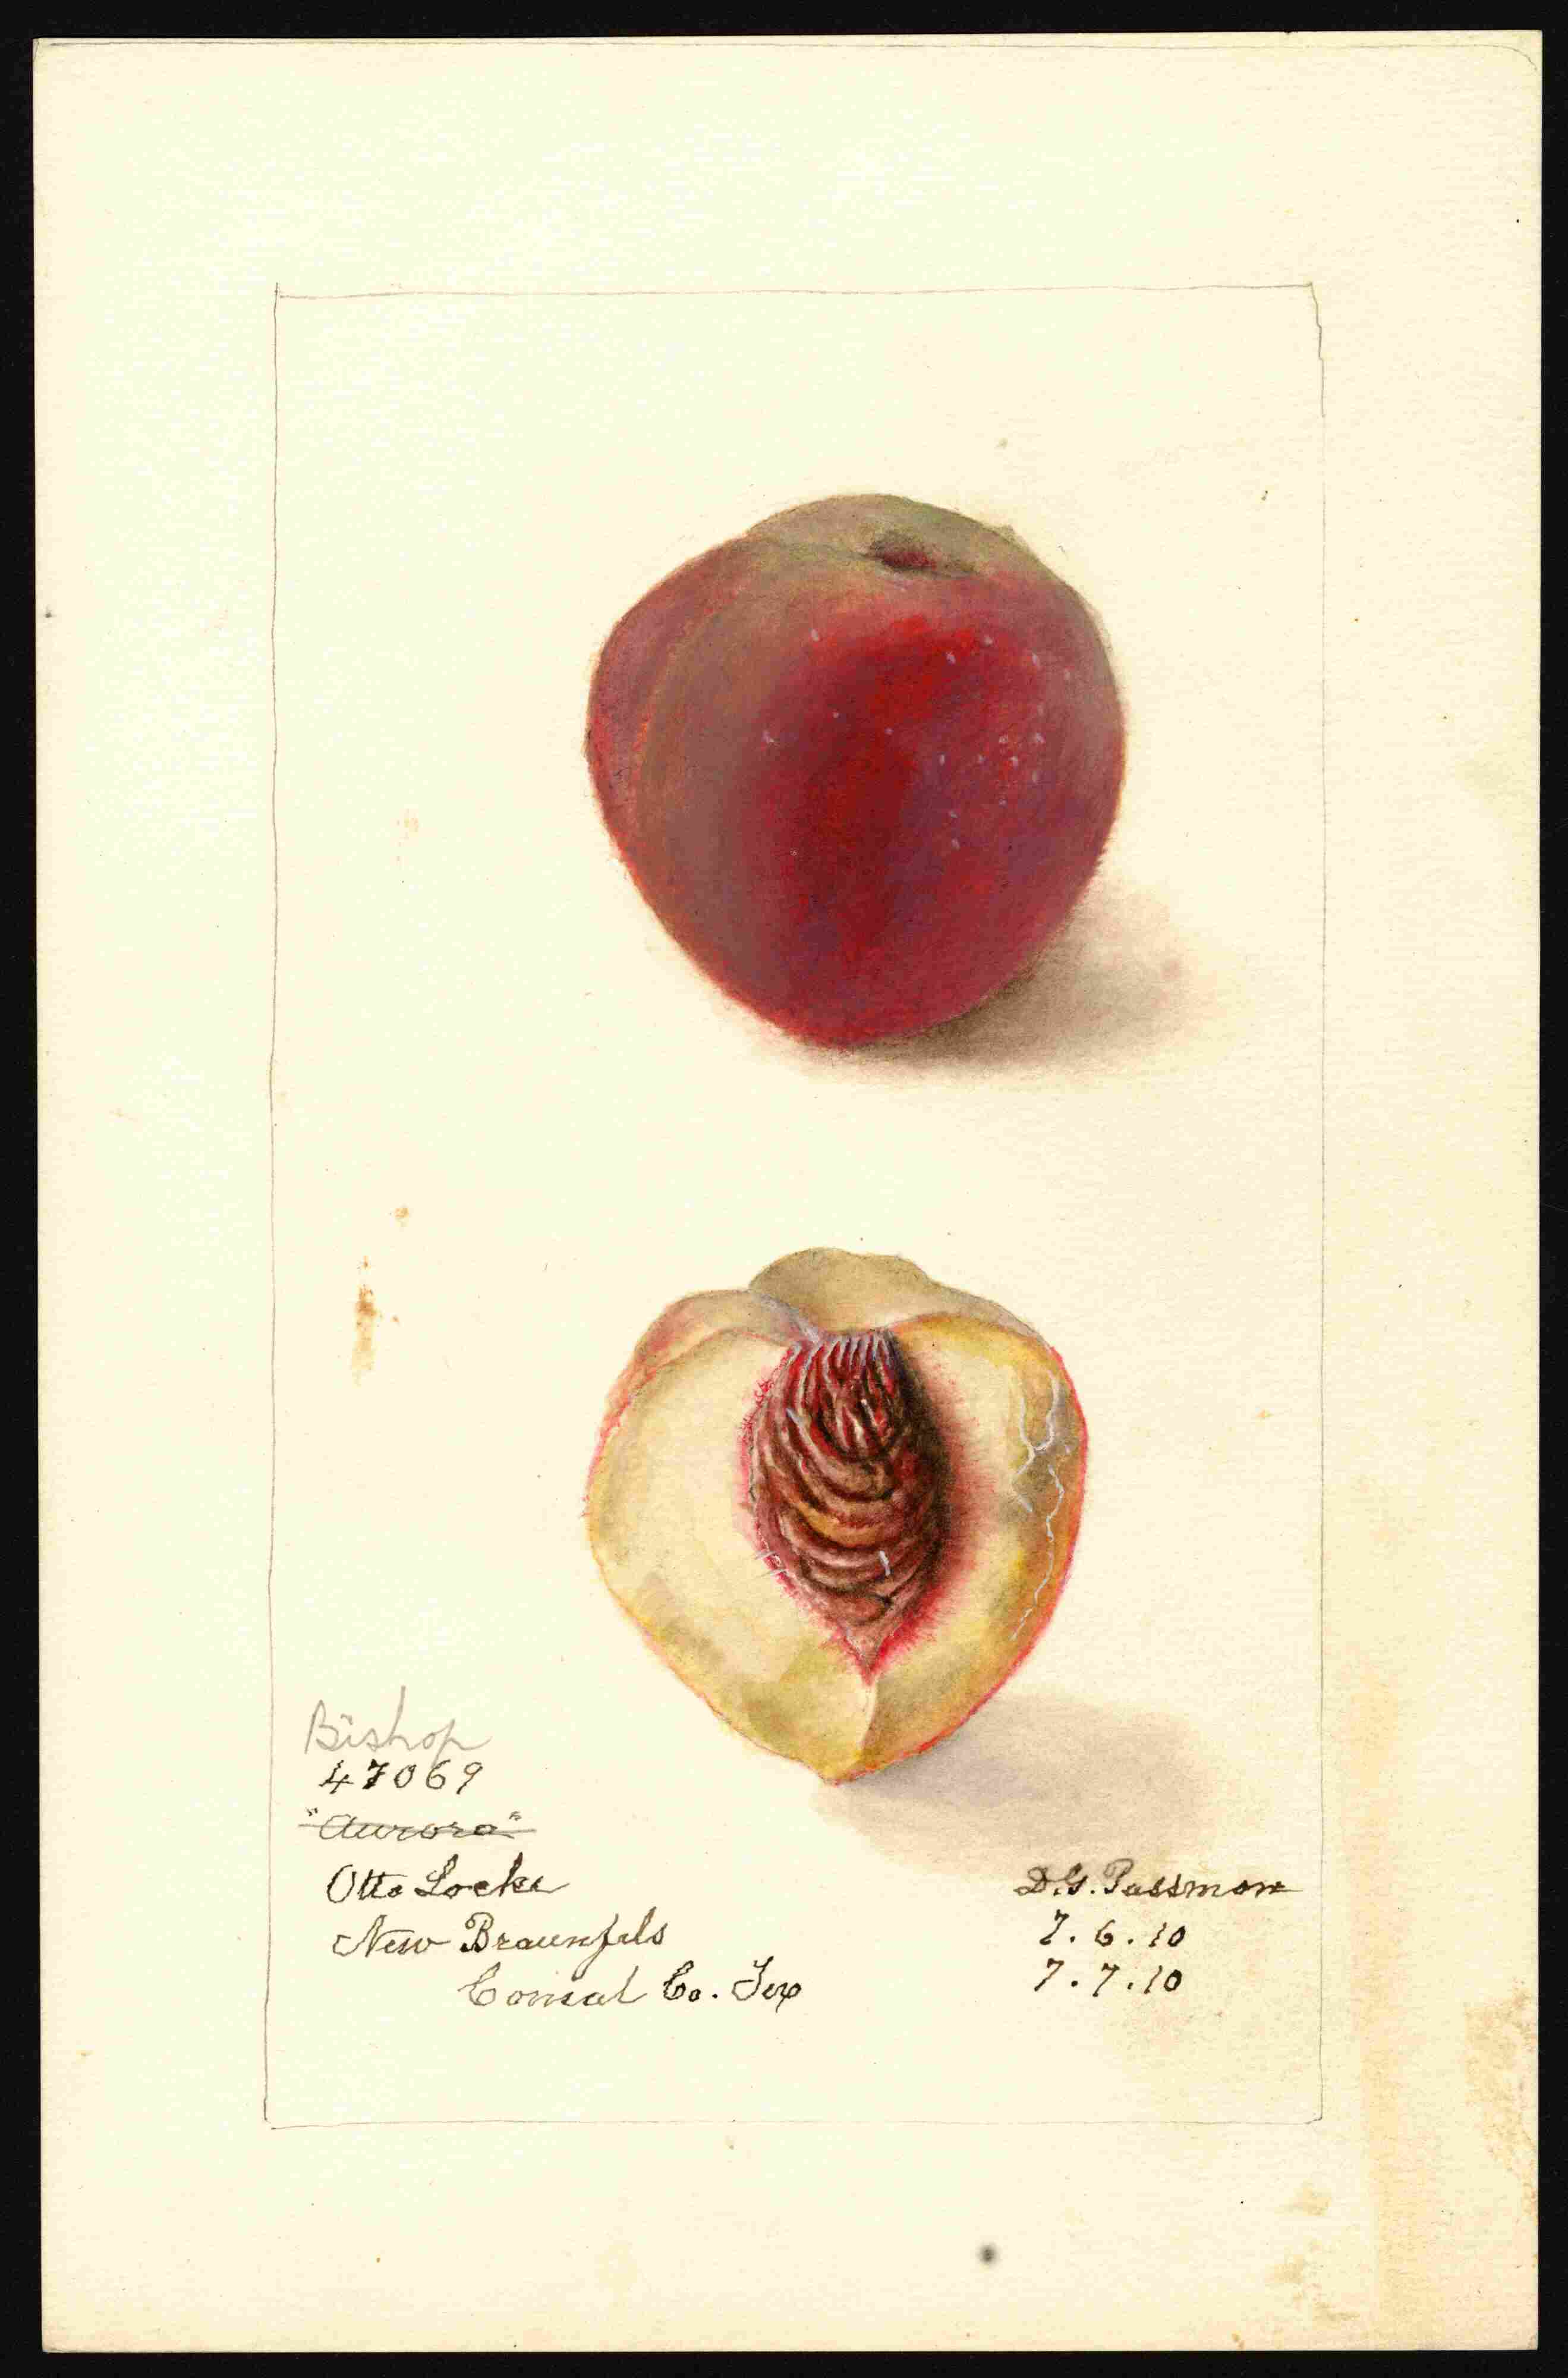 Bishop
47069
"Aurora"
Otto Locke
New Braunfels
Comal Co. Tex
D.G. Passmore
7.6.10
7.7.10